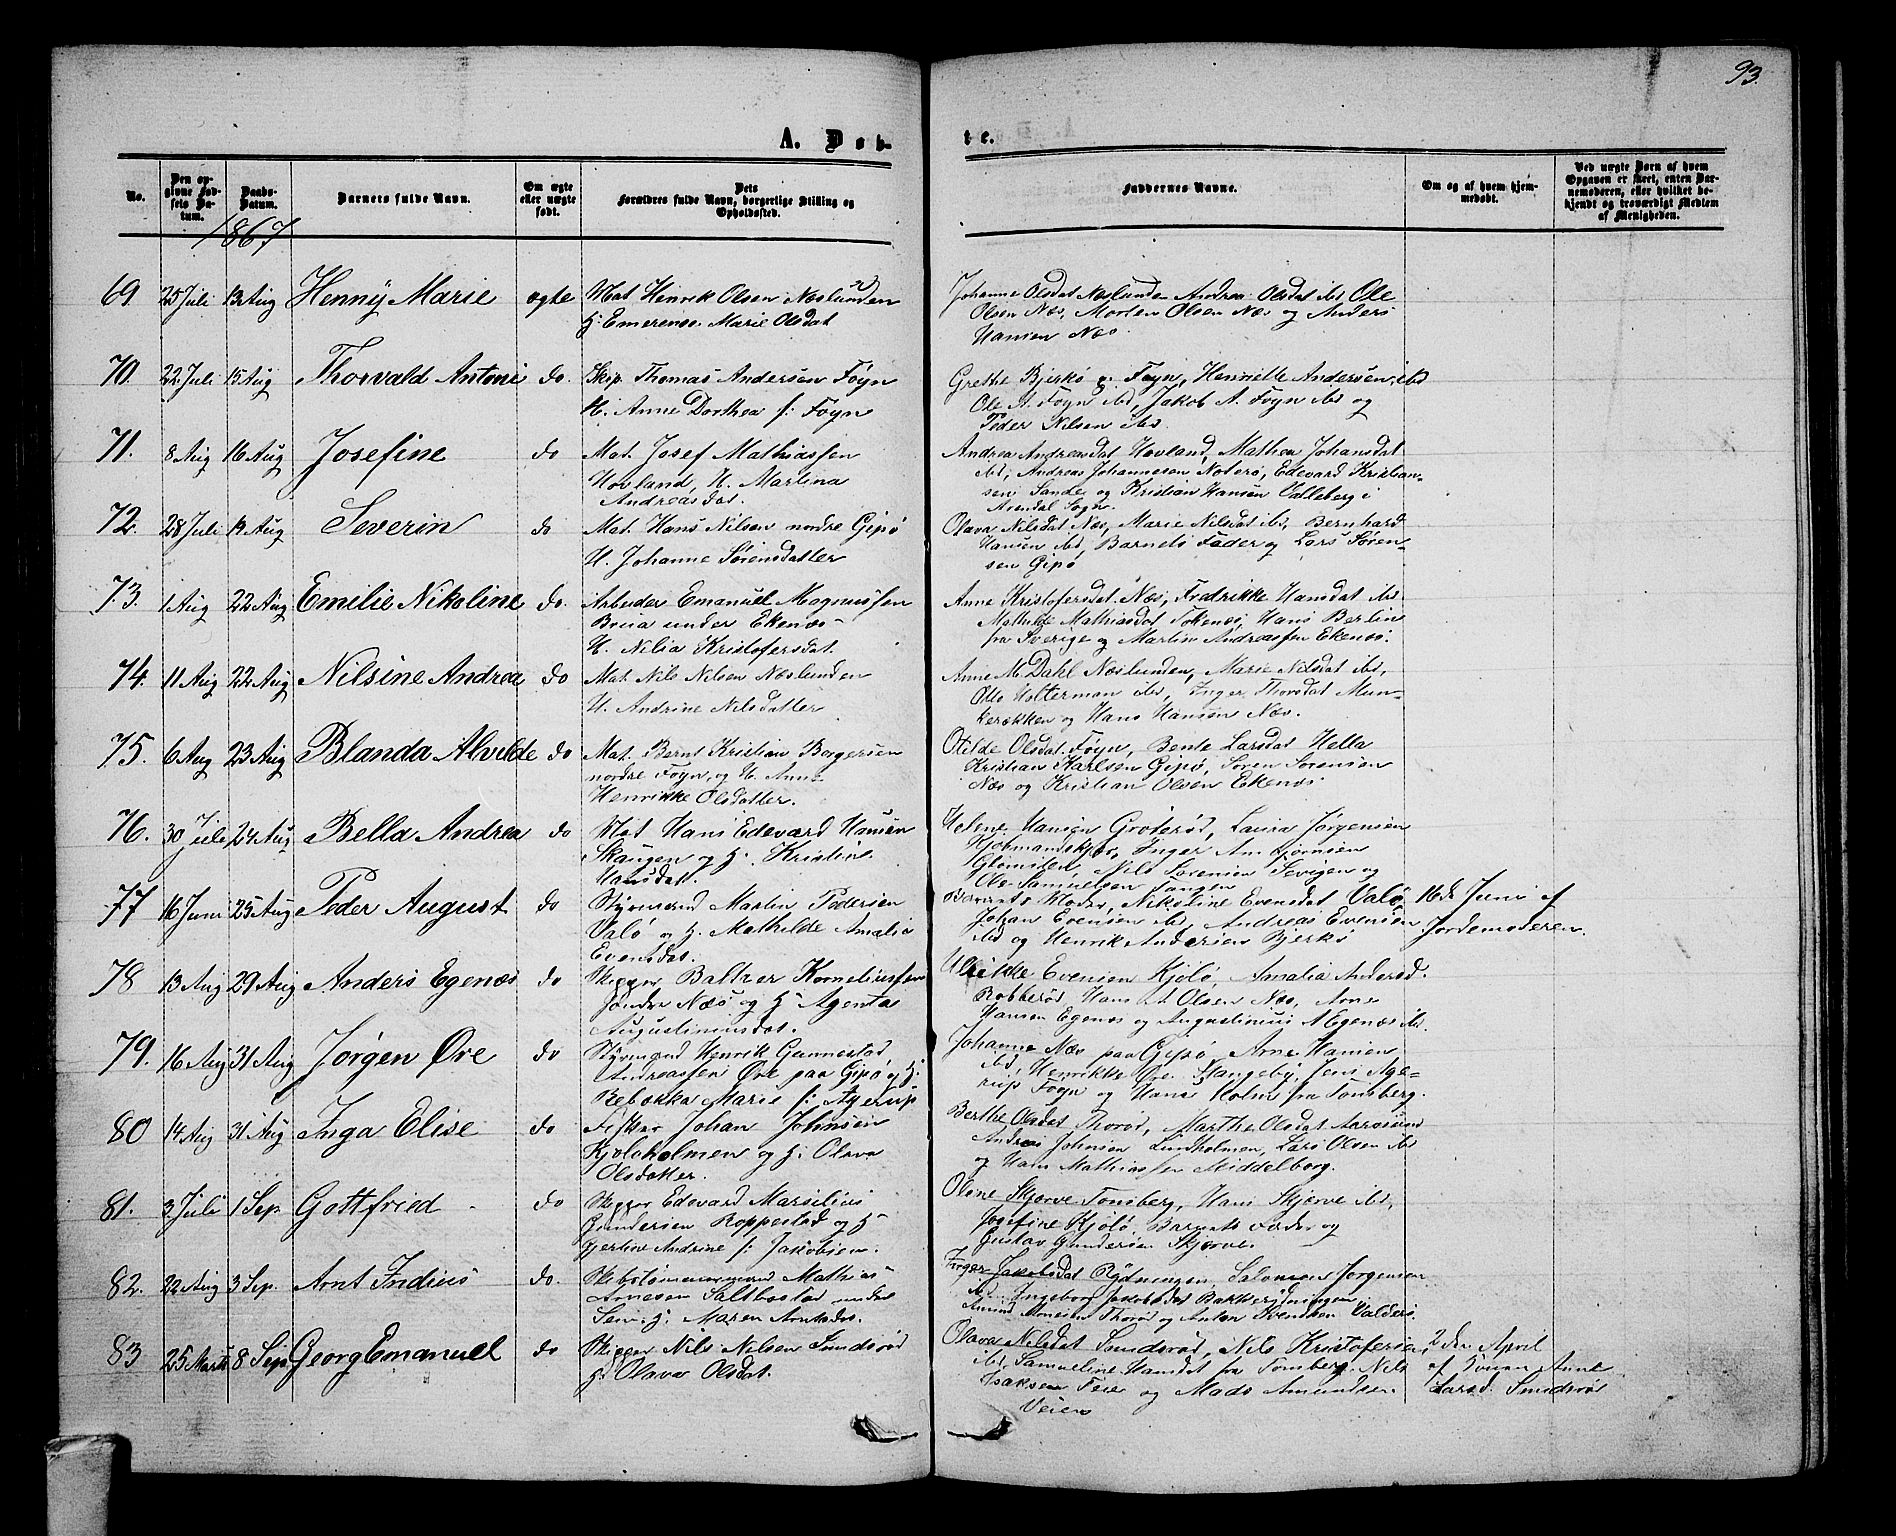 93.
A. Døb-
te.
No.
Den opgivne Fødsels Datum.
Daabs-Datum.
Barnets fulde Navn.
Om ægte eller uægte født.
Dets Forældres fulde Navn, borgerlige Stilling og Opholdssted.
Faddernes Navne.
Om og af hvem hjemmedøbt.
Ved uægte Børn af hvem Opgaven er skeet, enten Barnemoderen, eller hvilket bekjendt og troværdigt Medlem af Menigheden.
1867
69 25 Juli 13 Aug Henny Marie ægte Mat Henrik Olsen Næslunden
H: Emerense Marie Olsdat
Johanne Olsdat Næslunden Andrea Olsdat ibd Ole
Olsen Næs, Morten Olsen Næs og Anders
Hansen Næs.
70. 22 Juli 15 Aug Thorvald Antoni do. Skip. Thomas Andersen Føyn
H. Anne Dorthea f: Føyn
Grethe Bjerkø p. Føyn, Henriette Andersen, ibd
Ole A. Føyn ibd, Jakob A. Føyn ibd og
Peder Nilsen ibd
71. 8 Aug 16 Aug Josefine do Mat. Josef Mathiassen
Hovland, H. Martina
Andreasdat.
Andrea Andreasdat Hovland, Mathea Johansdat
ibd, Andreas Johannesen Noterø, Edevard Kristian-
sen Sande og Kristian Hansen Valleberg i
Arendal Sogn.
72. 28 Juli Aug Severin do Mat. Hans Nilsen nordre Gipø
H. Johanne Sørensdatter
Olava Nilsdat Næs, Marie Nilsdat ibd, Bernhard
Hansen ibd, Barnets Fader og Lars Søren-
sen Gipø
73. 1 Aug 22 Aug Emilie Nikoline do. Arbeider Emanuel Magnussen
Bria under Ekenæs
H. Nilia Kristofersdat.
Anne Kristofersdat Næs, Fredrikke Hansdat ibd
Mathilde Mathiasdat Tokenæs, Hans Berlin
fra Sverige og Martin Andreassen Ekenæs.
74. 11 Aug 22 Aug Nilsine Andrea do Mat. Nils Nilsen Næslunden
H. Andrine Nilsdatter
Anne M. Dahl Næslunden, Marie Nilsdat ibd,
Otto Holterman ibd, Inger Thorsdat Mun-
kerækken og Hans Hansen Næs.
75. 6 Aug 23 Aug Blanda Alvilde do Mat. Bernt Kristian Borgersen
nordre Føyn, og H. Anne
Henrikke Olsdatter.
Otilde Olsdat Føyn, Bente Larsdat Hella
Kristian Karlsen Gipø, Søren Sørensen
Næs og Kristian Olsen Ekenæs
76. 30 Juli 24 Aug Bella Andrea do Mat Hans Edevard Hansen
Skaugen og H. Kristine
Hansdat.
Helene Hansen Groterød, Laura Jørgensen
Kjøbmandskjær, Inger
Glomsten, Nils Sørensen Sevigen og
Ole Samuelsen Tangen
77 16 Juni 25 Aug Peder August do Styrmand Martin Pedersen
Valø og H. Mathilde Amalia
Evensdat.
Barnets Moder, Nikoline Evensdat Valø,
Johan Evensen ibd, Andreas Evensen
ibd og Henrik Andersen Bjerkø
16de Juni af
Jordemoderen.
78 13 Aug 29 Aug Anders Egenæs do Skipper Baltzer Korneliussen
søndre Næs og H. Agentse
Augustiniusdat.
Ulrikke Evensen Kjølø, Amalia Andersd.
Robberød, Hans A Olsen Næs, Arne
Hansen Egenæs og Augustinius A Egenæs ibd.
79. 16 Aug 31 Aug Jørgen Øre do Styrmand Henrik Gunnestad
Andreassen Øre paa Gipø og H:
Rebækka Marie f: Agerup
Johanne Næs paa Gipø, Arne Hansen
ibd, Henrikke Øre Slangeby, Jens Age-
rup Føyn og Hans Holm fra Tønsberg.
80 14 Aug 31 Aug Inga Elise do Fisker Johan Johnsen
Kjøløholmen og H: Olava
Olsdatter.
Berthe Olsdat Thorød, Marthe Olsdat Aarøsund
Andreas Johnsen Lindholmen, Lars Olsen ibd
og Hans Mathiassen Middelborg.
81. 3 Juli 1 Sep. Gottfried do Skipper Edevard Marsilius
Gundersen Roppestad og H
Gjertine Andrine f: Jakobsen.
Oline Skjerve Tønsberg, Hans Skjerve ibd,
Josefine Kjølø, Barnets Fader og
Gustav Gundersen Skjerve.
82. 22 Aug 3 Sep. Arnt Indius do. Skibstømmermand Mathias
Arnesen Saltbostad under
Sem H: Maren Arntsdat.
Inger Jakobsdat Rydningen, Salomon Jørgensen
ibd, Ingeborg Jakobsdat Bakkerydningen
Amund Monsen Thorød og Anton Svendsen Valders.
83 25 Marts 8 Sep. Georg Emanuel do Skipper Nils Nilsen Smidsrød
H: Olava Olsdat.
Olava Nilsdat Smidsrød, Nils Kristofersen
ibd, Samueline Hansdat fra Tønsberg, Nils
Isaksen Feie og Mads Amundsen
Veien
2den April
af Kvinden Anne
Larsd. Smidsrød